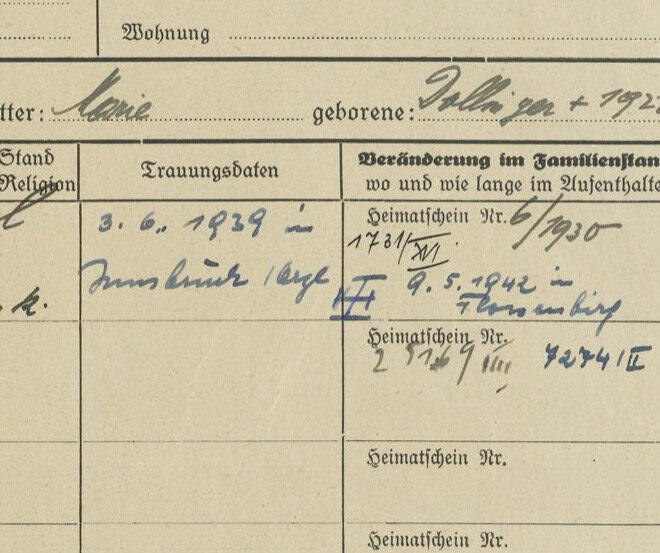 Wohnung
tter: Marie geborene: Dollinger + 192
Stand
Religion
Trauungsdaten
Veränderung im Familienstan
wo und wie lange im Aufenthalte
Heimatschein Nr. 6/1930
1731/XVI.
3. 6. 1939 in
Innsbruck
9. 5. 1942 in
k.
Flossenbürg
Heimatschein Nr.
7274/II
Heimatschein Nr.
Heimatschein Nr.